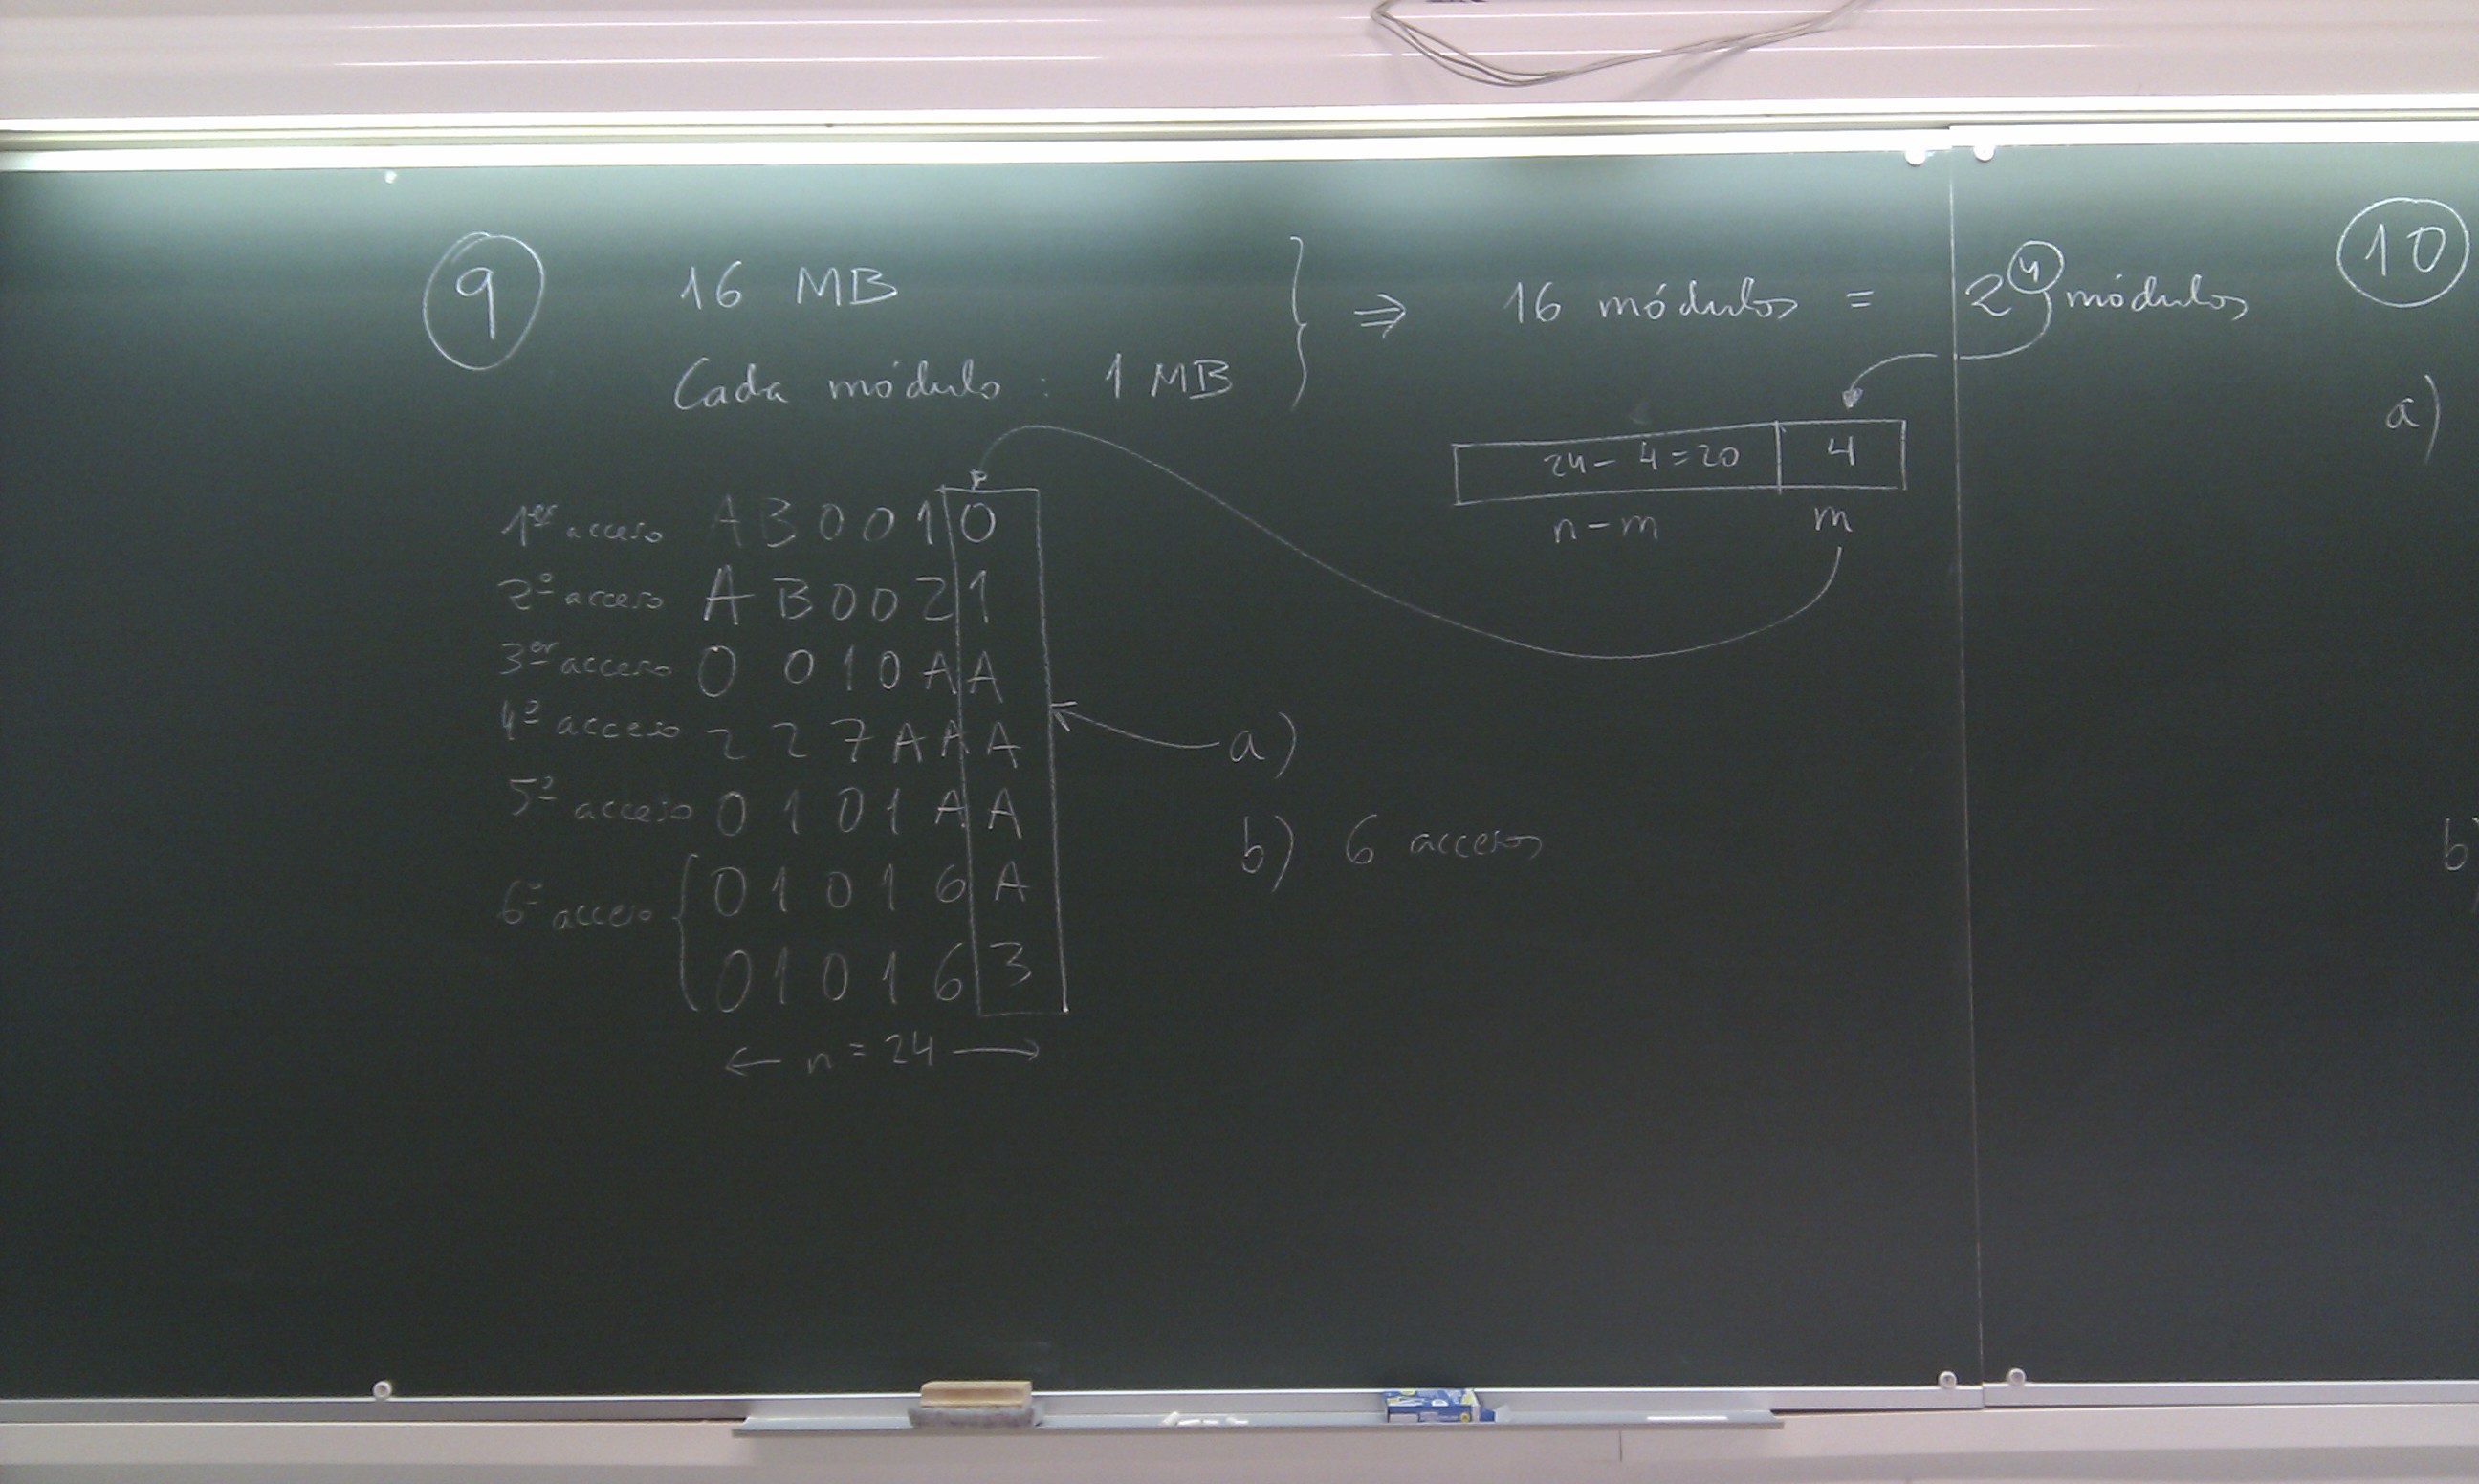 9 16 MB ⇒ 16 módulos = 2^4 módulos
Cada módulo : 1 MB
24 - 4 = 20 4
n - m m
1er acceso A B 0 0 1 0
2º acceso A B 0 0 2 1
3er acceso 0 0 1 0 A A
4º acceso 2 2 7 A A A
5º acceso 0 1 0 1 A A
6º acceso 0 1 0 1 6 A
0 1 0 1 6 3
← n = 24 →
a)
b) 6 accesos
10
a)
b)